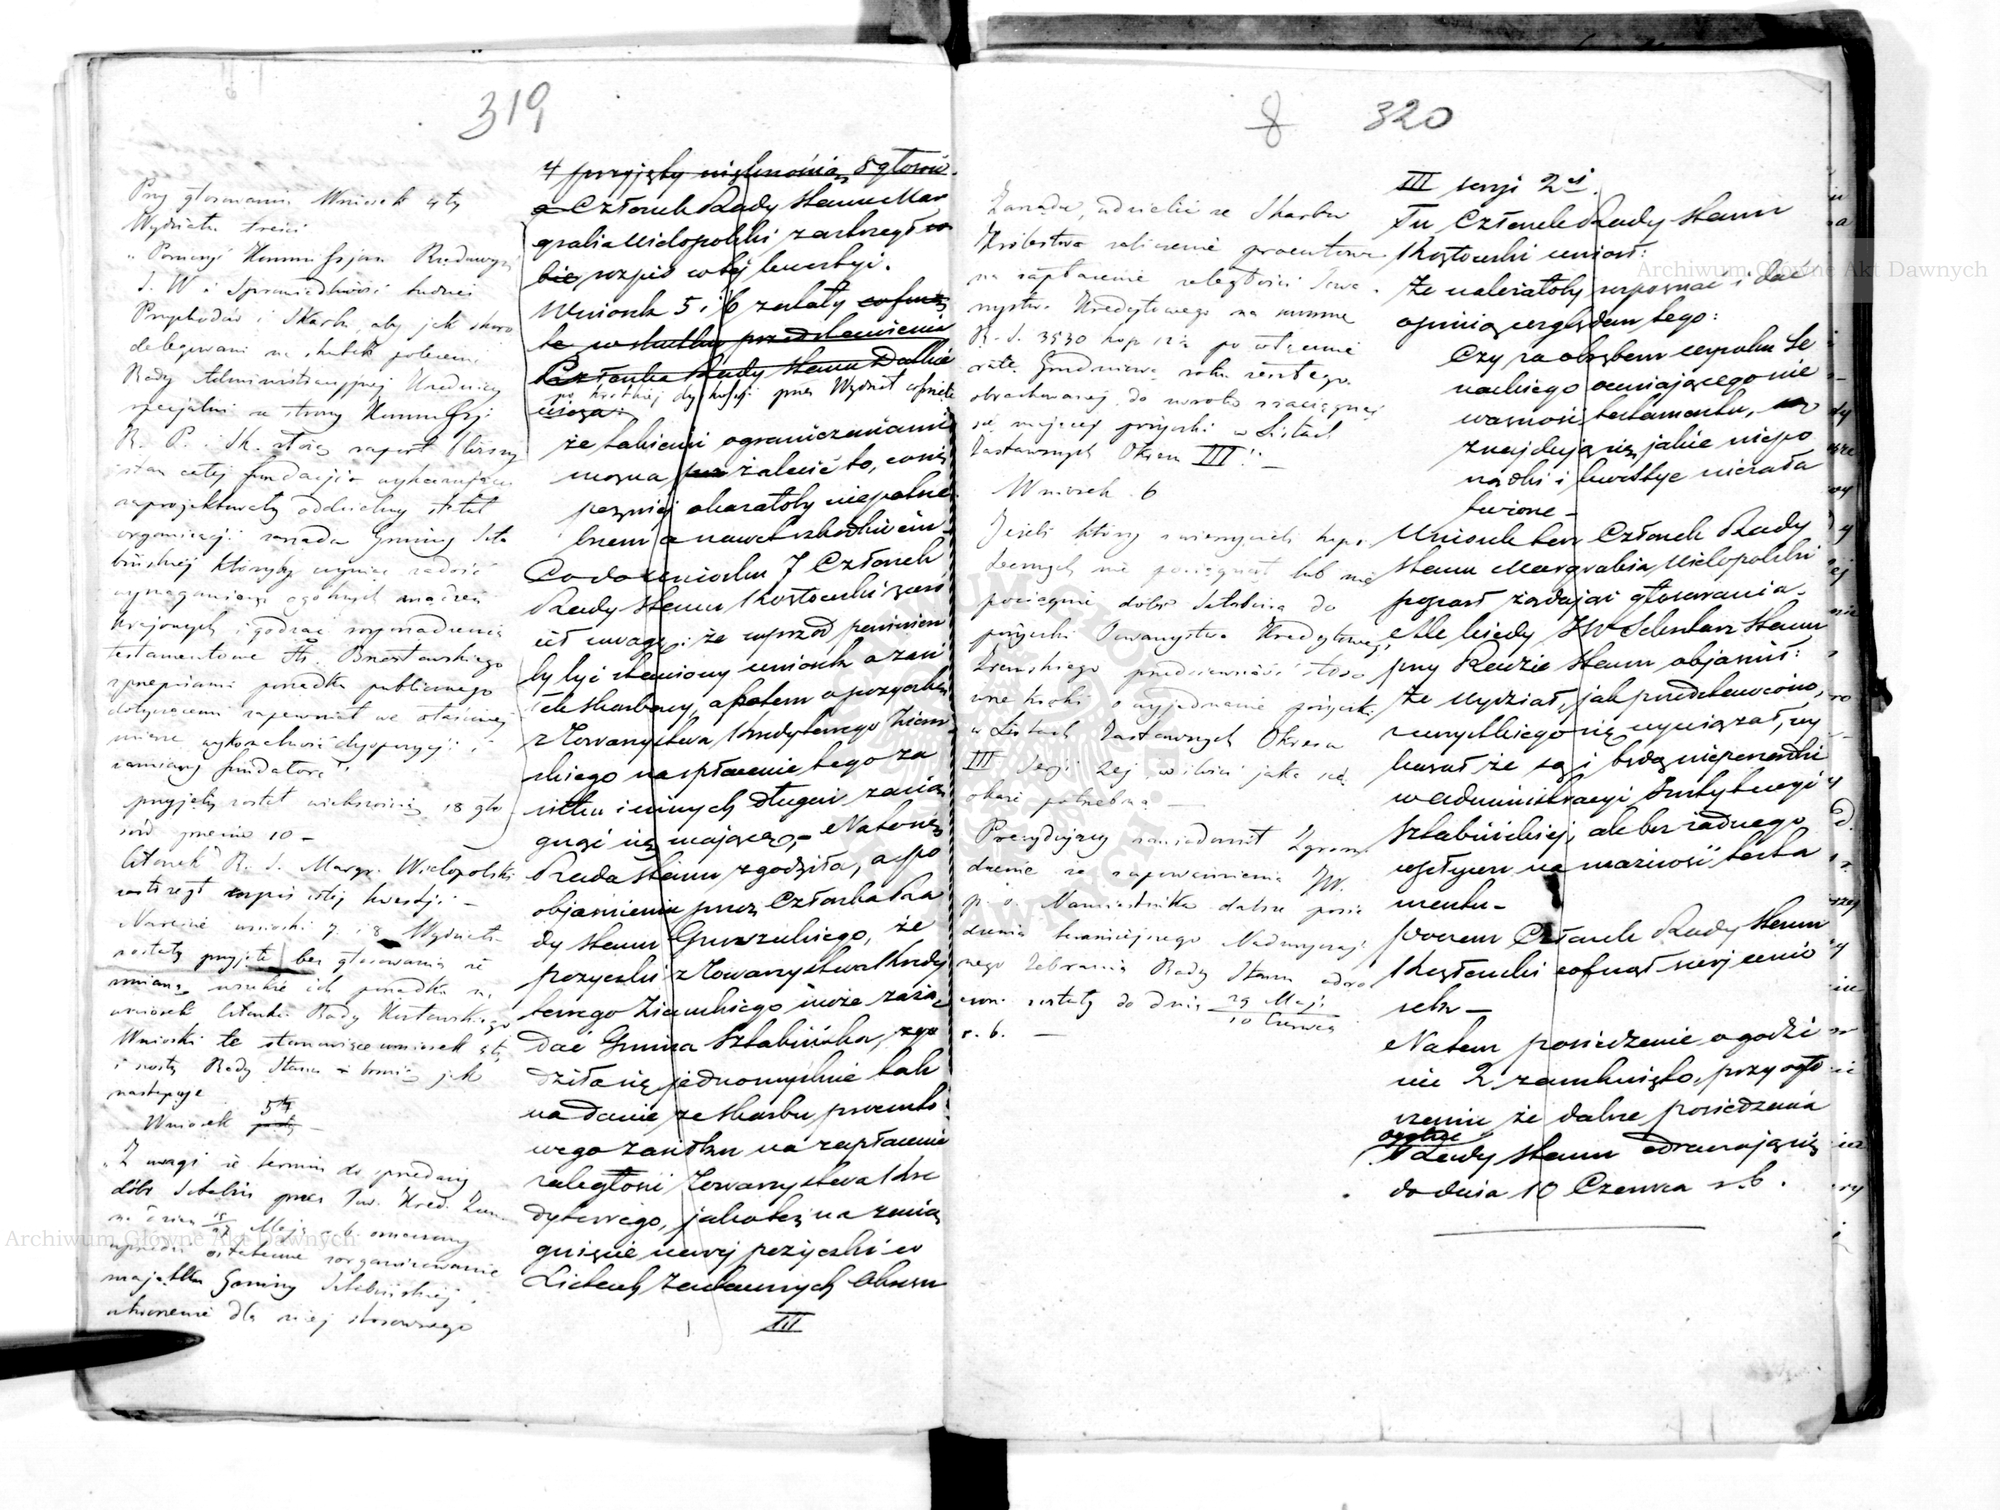 319
Przy głosowaniu Wniosek 4ty
Wydziału treści
„Poruczyć Kommissjom Rządowym
S. W. i Sprawiedliwości tudzież
Przychodów i Skarbu, aby jak skoro
delegowani na skutek polecenia
Rady Administracyjnej Urzędnicy
specjalni ze strony Kommissji
R. P. i Sk. złożą raport
stan całej fundacji wykazujący
zaprojektowały oddzielny etat
organizacji zarządu Gminy Szta
bińskiej któryby
wymaganiom ogólnych urządzeń
krajowych i godząc rozporządzenia
testamentowe Hr. Brzostowskiego
z przepisami porządku publicznego
dotyczącemi zapewniał we właściwej
mierze wykonalność dyspozycji i
zamiary fundatora”
przyjęty został większością 18 gło
sów przeciw 10 —
Członek R. S. Margr. Wielopolski
zastrzegł wpis w tej kwestji —
Nareście wnioski 7 i 8 Wydziału
zostały przyjęte bez głosowania ze
zmianą wszakże ich porządku na
wniosek Członka Rady Kosztowskiego
Wnioski te stanowiące wniosek 5ty
i szósty Rady Stanu brzmią jak
następuje
Wniosek 5ty
„Z uwagi że termin do sprzedaży
dóbr Sztabin przez Tow. Kred. Ziem.
na dzień Maja r. b. oznaczony
uprzedzi ostateczne zorganizowanie
majątku Gminy Sztabińskiej i
utworzenie dla niej stosownego
4 przyjęty większością 8 głosów
a Członek Rady Stanu Mar
grabia Wielopolski zastrzegł so
bie wpis w tej kwestyi.
Wniosek 5 i 6 zostały cofnię
te w skutku przedstawienia
Członka Rady Stanu
po krótkiej dyskusji przez Wydział cofnięte
uwaga:
że takiemi ograniczeniami
można żalecić to, co się
pozniej okazałoby niepotrze
bnem a nawet szkodliwem —
Co do wniosku 7 Członek
Rady Stanu Kosztowski zwró
cił uwagę: że wprzód powinien
by być stawiony wniosek o zasi
łek skarbowy, a potem o pożyczkę
z Towarzystwa Kredytowego Ziem
skiego na spłacenie tego za
siłku i innych długów zacią
gnąć się mającą, — Na to się
Rada Stanu zgodziła, a po
objaśnieniu przez Członka Ra
dy Stanu Gruszeckiego, że
pożyczki z Towarzystwa Kredy
towego Ziemskiego może żą
dać Gmina Sztabińska, zgo
dziła się jednomyślnie tak
na danie ze Skarbu procento
wego zasiłku na zapłacenie
zaległości Towarzystwa Kre
dytowego, jakoteż na zacią
gnięcie nowej pożyczki w
Listach Zastawnych Okresu
III
8 320
Zarządu, udzielić ze Skarbu
Królestwa zaliczenie procentowe
na zapłacenie zaległości Towa
rzystwa Kredytowego na summę
R. S. 3530 kop 12½ po włączenie
ratę Grudniową roku zeszłego
obrachowanej do zwrotu z zaciągnąć
się mającej pożyczki w Listach
Zastawnych Okresu III” —
Wniosek 6
Jeżeli który z wierzycieli hypo
tecznych nie pociągnął lub nie
pociągnie dóbr Sztabina do
pożyczki Towarzystwa Kredytowego
Ziemskiego przedsiewziąść stoso
wne kroki o wyjednanie pożyczki
w Listach Zastawnych Okresu
III Serji 2ej w ilości jaka się
okaże potrzebną —
Prezydujący zawiadomił Zgroma
dzenie że z upoważnienia JW.
p. o. Namiestnika dalsze posie
dzenia teraźniejszego Nadzwyczaj
nego Zebrania Rady Stanu odro
czone zostały do dnia 29 Maja / 10 Czerwca
r. b. —
III seryi 2ej.
Tu Członek Rady Stanu
Kosztowski wniósł:
że należałoby rozpoznać i dać
opinią względem tego:
Czy za obrębem wyroku Se
nackiego oceniającego nie
ważność testamentu,
znajdują się jakie niepo
rządki i kwestye niezała
twione —
Wniosek ten Członek Rady
Stanu Margrabia Wielopolski
poparł żądając głosowania.
Ale kiedy JW Sekretarz Stanu
przy Radzie Stanu objaśnił:
że Wydział, jak przedstawiono,
z wszystkiego się wywiązał, wy
kazał że są i będą nieporządki
w administracyi Instytucyi
Sztabińskiej, ale bez żadnego
wpływu na ważność testa
mentu —
poczem Członek Rady Stanu
Kosztowski cofnął swój wnio
sek —
Na tem posiedzenie o godzi
nie 2 zamknięto, przy ogło
szeniu że dalsze posiedzenia
ogólne
Rady Stanu odraczają się
do dnia 10 Czerwca r. b.
Archiwum Główne Akt Dawnych
Archiwum Główne Akt Dawnych